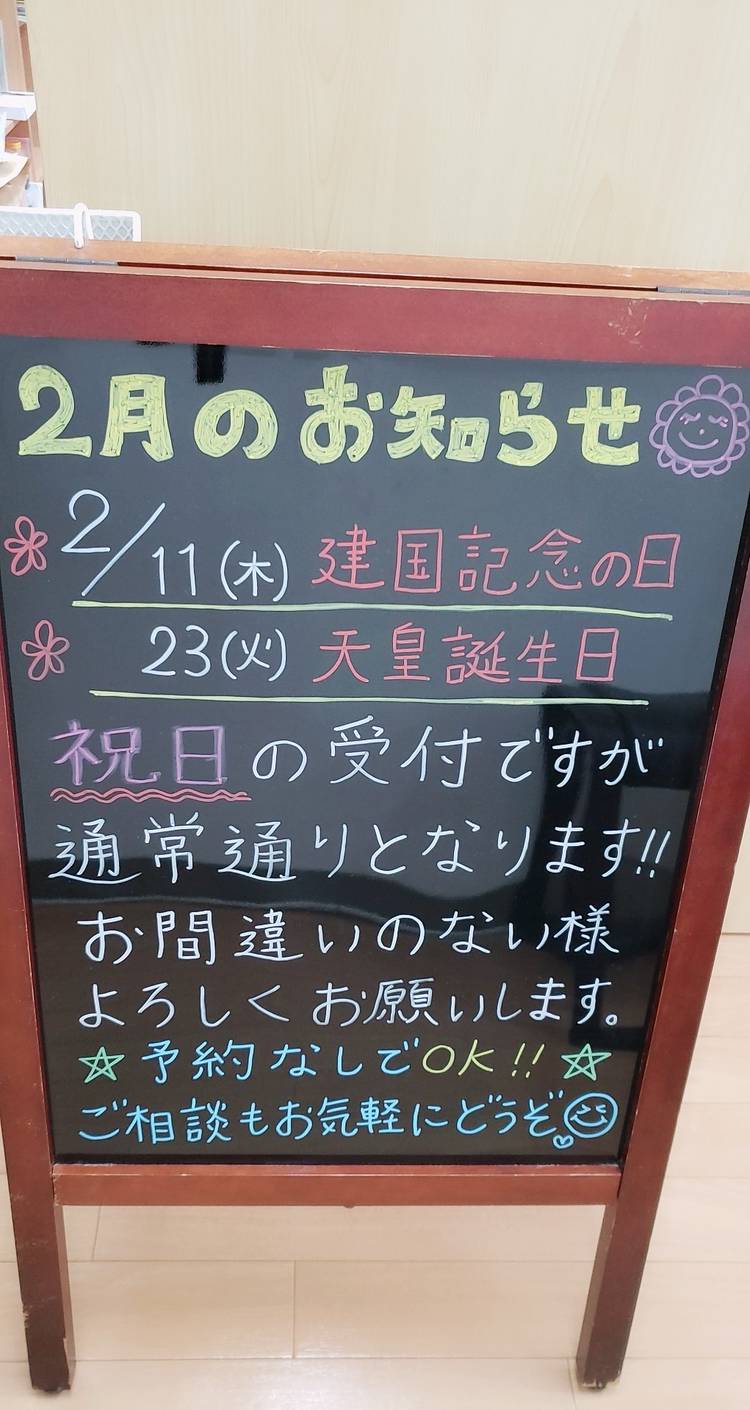 2月のお知らせ
2/11(木) 建国記念の日
23(火) 天皇誕生日
祝日の受付ですが
通常通りとなります!!
お間違いのない様
よろしくお願いします。
☆予約なしでOK!!☆
ご相談もお気軽にどうぞ